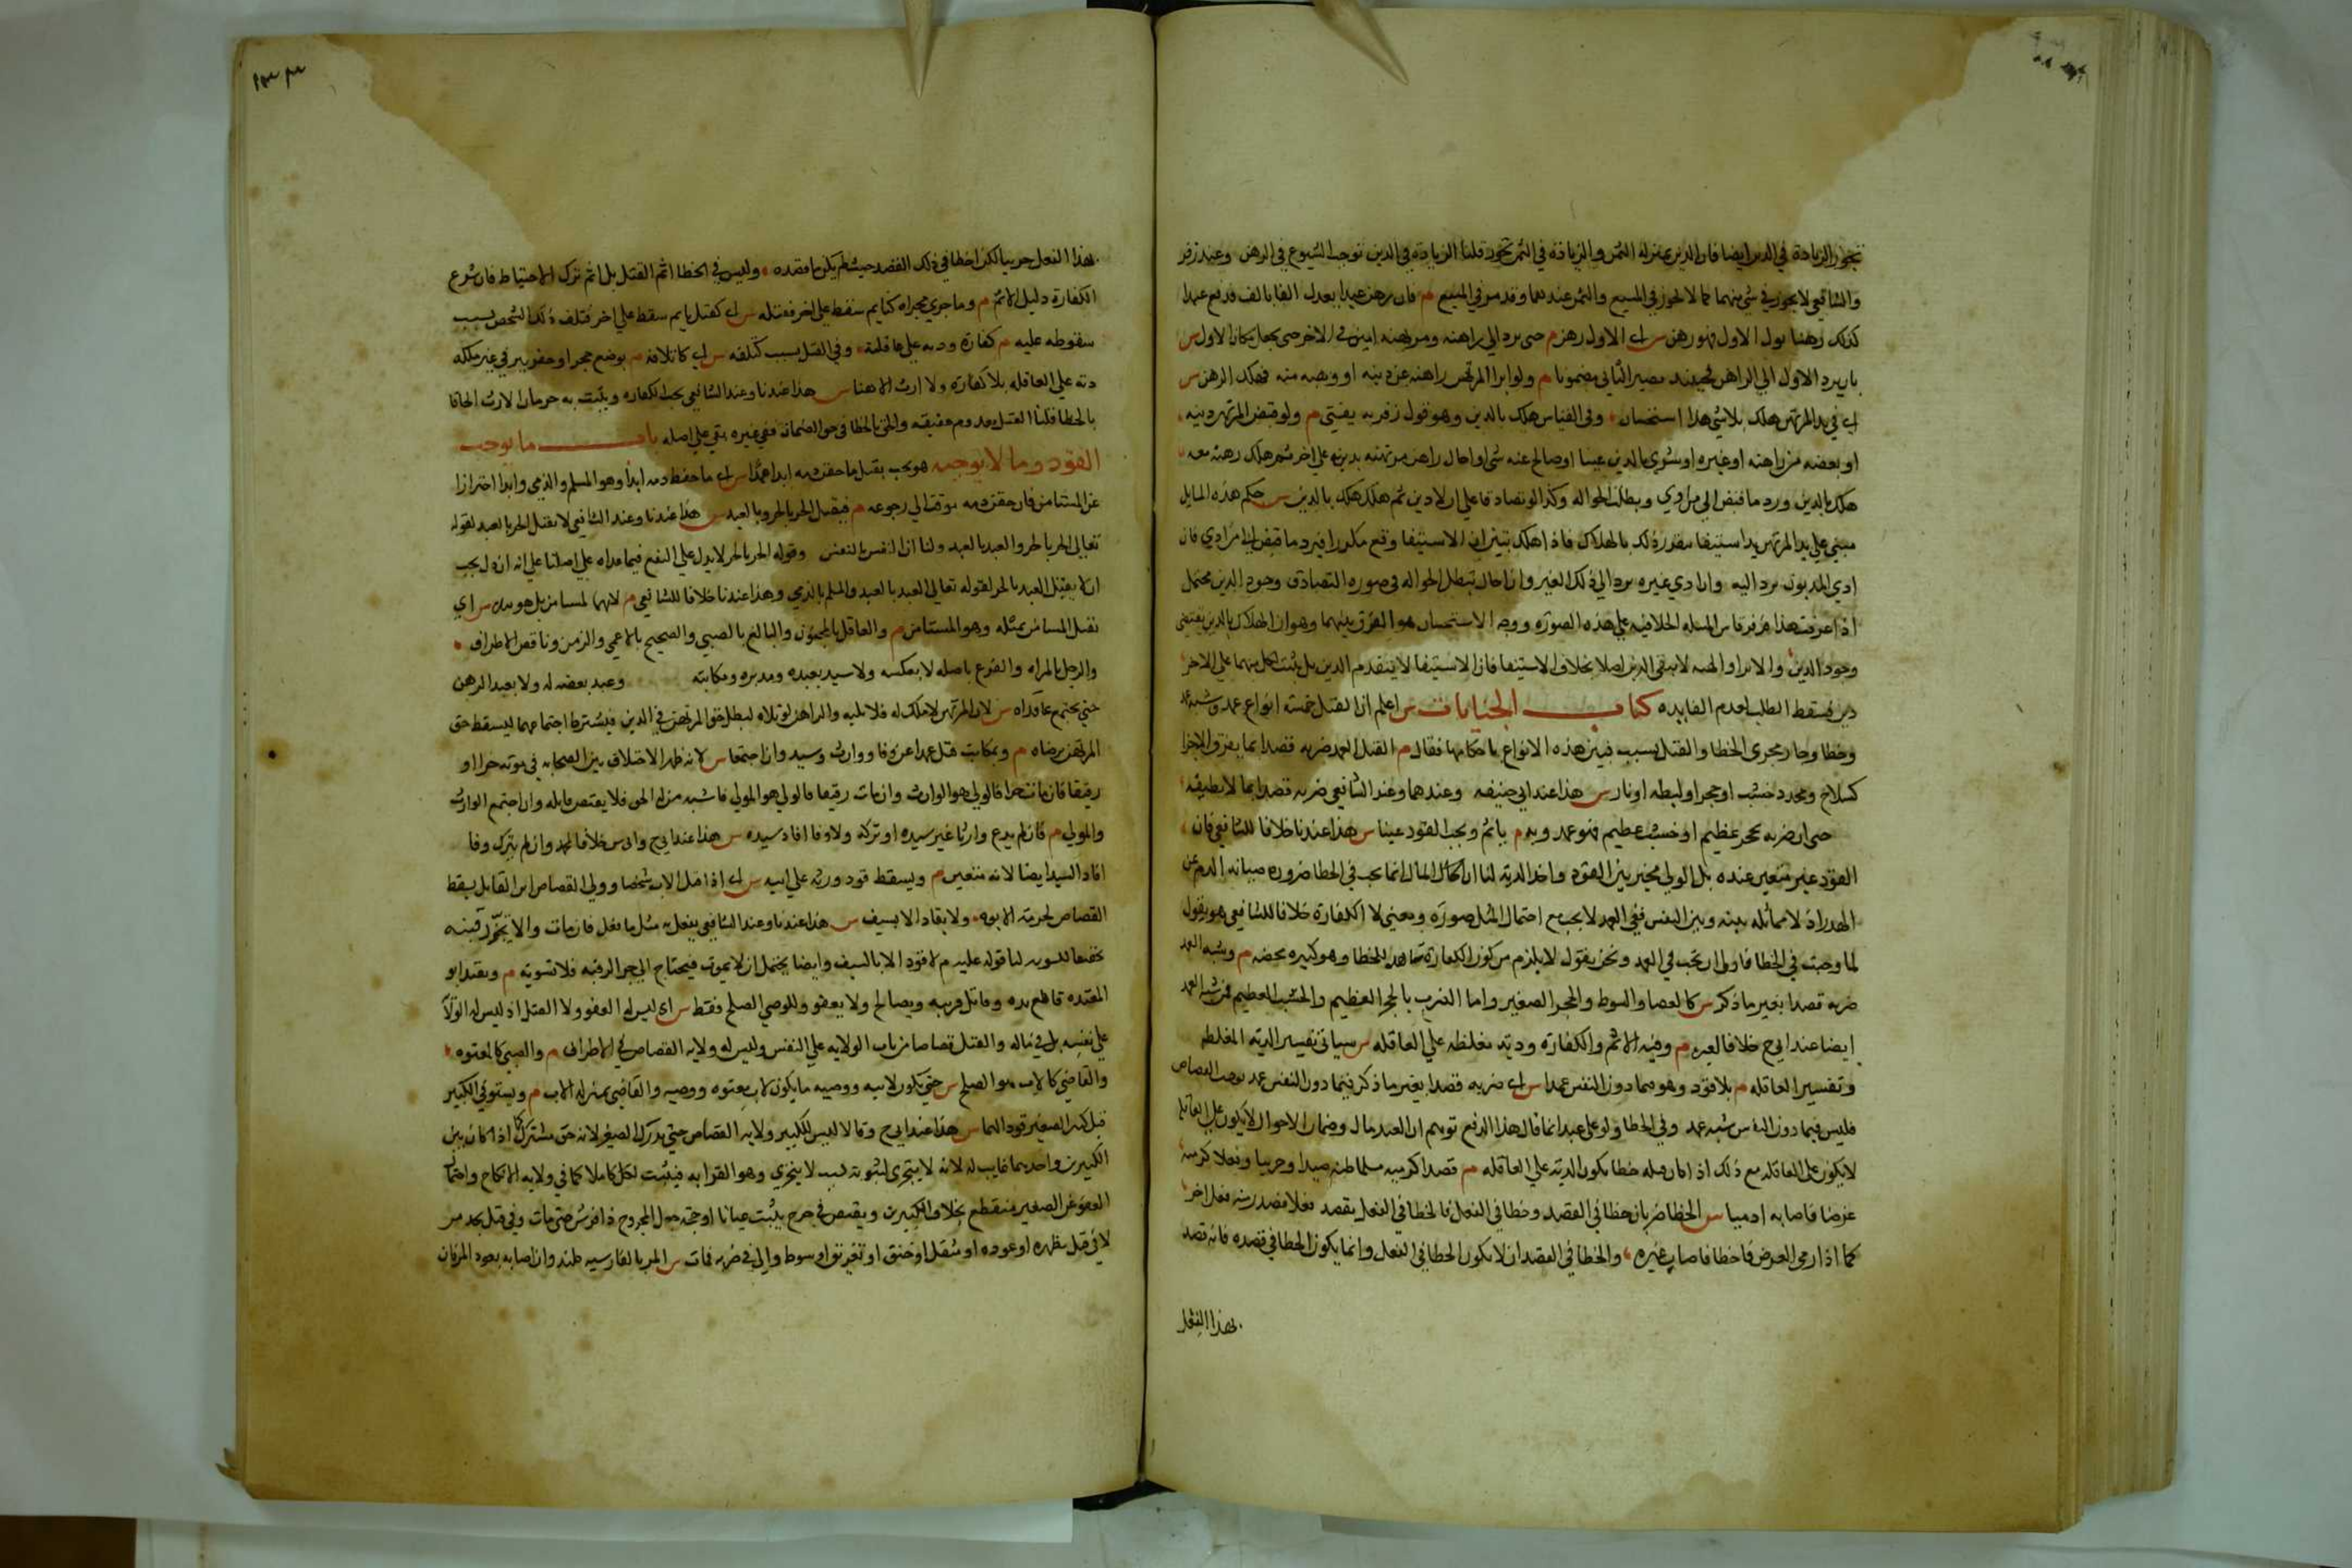 تجوز الزيادة في الدين ايضا فان الدين بمنزله الثمن والزيادة في الثمن تجوز قلنا الزيادة في الدين توجب الشيوع في الرهن وعند زفر
والشافعي لا يجوز في شي منهما كما لا تجوز في المبيع والثمن عندهما وقد مر في المبيع م فان رهن عبدا يعدل الفا بالف فدفع عبدا
كذلك رهنا بدل الاول فهو رهن س اي الاول رهن م حتى يرد الي راهنه ومرتهنه امين في الاخر حتى يجعل مكان الاول س
بان يرد الاول الي الراهن فحينئذ يصير الثاني مضمونا م ولو ابرا المرتهن راهنه عن دينه او وهبه منه فهلك الرهن س
اي في يد المرتهن هلك بلا شي هذا استحسان وفي القياس هلك بالدين وهو قول زفر به يفتي م ولو قبض المرتهن دينه
او بعضه من راهنه او غيره او شري بالدين عينا او صالح عنه شي او احال راهن مرتهنه بدينه علي اخر ثم هلك رهنه معه
هلك بالدين ورد ما قبض الي من ادي وبطلت الحواله وكذا لو تصادقا علي ان لا دين ثم هلك هلك بالدين س حكم هذه المسايل
مبني علي يد المرتهن يد استيفا يتقرر ذلك بالهلاك فاذا هلك تبين ان الاستيفا وقع مكررا فيرد ما قبض الي من ادي فان
ادي المديون يرد اليه وان ادي غيره يرد الي ذلك الغير وان احال تبطل الحواله في صوره التصادق وجود الدين محتمل
اذا عرفت هذا فزفر قاس المسله الخلافيه علي هذه الصوره ووجه الاستحسان هو الفرق بينهما وهو ان الهلاك بالدين يقتضي
وجود الدين والابرا والهبه لا يبقي الدين اصلا بخلاف الاستيفا فان الاستيفا لا ينقدم الدين بل يثبت لكل منهما علي الاخر
دين فيسقط الطلب لعدم الفايده كتاب الجنايات س اعلم ان القتل خمسه انواع عمد وشبه عمد
وخطا وجار مجري الخطا والقتل بسبب فبين هذه الانواع باحكامها فقال م القتل العمد ضربه قصدا بما يفرق الاجزا
كسلاح ومحدد خشب او حجر او ليطه او نار س هذا عند ابي حنيفه وعندهما وعند الشافعي ضربه قصدا بما لا يطيقه
حتى ان ضربه بحجر عظيم او خشب عظيم فهو عمد وبه م ياثم ويجب القود عينا س هذا عندنا خلافا للشافعي فان
القود غير متعين عنده بل الولي مخير بين القود واخذ الديه لنا ان المال انما يجب في الخطا ضروره صيانه الدم عن
الهدر اذ لا مماثله بينه وبين النفس ففي العمد لا يجب مع احتمال المثل صورة ومعني لا الكفارة خلافا للشافعي هو يقول
لما وجبت في الخطا فاولي ان تجب في العمد ونحن نقول لا يلزم من كون الكفارة للخطا وهو كبيره محضه م وشبه العمد
ضربه قصدا بغير ما ذكر س كالعصا والسوط والحجر الصغير واما الضرب بالحجر العظيم والخشب العظيم فمن شبه العمد
ايضا عند ابي ح خلافا لغيره م وفيه الاثم والكفاره وديه مغلظه علي العاقله س سياتي تفسير الديه المغلظه
وتفسير العاقله م بلا قود وهو فيما دون النفس عمدا س اي ضربه قصدا بغير ما ذكر فيما دون النفس عمد يوجب القصاص
فليس فيما دون النفس شبه عمد وفي الخطا ولو علي عبد انما قال هذا لدفع توهم ان العبد مال وضمان الاموال لا يكون علي العاقله
لا يكون علي العاقله مع ذلك اذا كان قتله خطا يكون الديه علي العاقله م قصدا كرميه مسلما ظنه صيدا او حربيا وفعلا كرميه
غرضا فاصابه ادميا س الخطا ضربان خطا في القصد وخطا في الفعل فالخطا في الفعل يقصد فعلا فصدر منه فعل اخر
كما اذا رمي الغرض فاخطا فاصاب غيره والخطا في القصد ان لا يكون الخطا في الفعل وانما يكون الخطا في قصده فانه قصد
بهذا الفعل
بهذا الفعل حربيا لكن اخطا في ذلك القصد حيث لم يكن ما قصده وليس في الخطا اثم القتل بل اثم ترك الاحتياط فان شرع
الكفاره دليل الاثم م وما جري مجراه كنايم سقط علي اخر فقتله س اي كقتل نايم سقط علي اخر فتلف ذلك الشخص بسبب
سقوطه عليه م كفارة وديه علي عاقلته وفي القتل بسبب كتلفه س اي كاتلافه م بوضع حجر او حفر بير في غير ملكه
ديه علي العاقله بلا كفاره ولا ارث الا هنا س هذا عندنا وعند الشافعي يجب الكفاره ويثبت به حرمان الارث الحاقا
بالخطا قلنا القتل معدوم حقيقه والحق بالخطا في حق الضمان ففي غيره بقي علي اصله باب ما يوجب
القود وما لا يوجبه هو يجب بقتل ما حقن دمه ابدا عمدا س اي ما حفظ دمه ابدا وهو المسلم والذمي وابدا احترازا
عن المستامن فان حقن دمه موقت الي رجوعه م فيقتل الحر بالحر وبالعبد س هذا عندنا وعند الشافعي لا يقتل الحر بالعبد لقوله
تعالى الحر بالحر والعبد بالعبد ولنا ان النفس بالنفس وقوله الحر بالحر لا يدل علي النفي فيما عداه علي اصلنا علي انه ان دل يجب
ان لا يقتل العبد بالحر لقوله تعالي العبد بالعبد والمسلم بالذمي وهذا عندنا خلافا للشافعي م لا هما بمستامن بل هو بنده س اي
يقتل المستامن بمثله وهو المستامن م والعاقل بالمجنون والبالغ بالصبي والصحيح بالاعمي والزمن وناقص الاطراف
والرجل بالمراه والفرع باصله لا بعكسه ولا سيد بعبده ومدبره ومكاتبه وعبد بعضه له ولا بعبد الرهن
حتي يجتمع عاقداه س لان المرتهن لا ملك له فلا يليه والراهن لو تولاه لبطل حق المرتهن في الدين فيشترط اجتماعهما ليسقط حق
المرتهن برضاه م وبمكاتب قتل عمدا عن وفا ووارث وسيد وان اجتمعا س لانه ظهر الاختلاف بين الصحابه في موته حرا او
رقيقا فان مات حرا فالولي هو الوارث وان مات رقيقا فالولي هو المولي فاشتبه من له الحق فلا يقتص قاتله وان اجتمع الوارث
والمولي م فان لم يدع وارثا غير سيده او تركه ولا وفا افاد سيده س هذا عند ابي ح وابي س خلافا لمحمد وان لم يترك وفا
اقاد السيد ايضا لانه متعين م ويسقط قود ورثه علي ابيه س اي اذا قتل الاب شخصا وولي القصاص ابن القاتل يسقط
القصاص لحرمه الابوه ولا يقاد الا بسيف س هذا عندنا وعند الشافعي يفعل به مثل ما فعل فان مات والا تحز رقبته
تحقيقا للتسويه لنا قوله عليه م لا قود الا بالسيف وايضا يحتمل ان لا يموت فيحتاج الي حز الرقبه فلا تسويه م ويقتد ابو
المعتوه قاطع يده وقاتل قريبه ويصالح ولا يعفو وللوصي الصلح فقط س اي ليس له العفو ولا القتل اذ ليس له الولاية
علي نفسه بل في ماله والقتل قصاصا من باب الولايه علي النفس وليس له ولايه القصاص في الاطراف م والصبي كالمعتوه
والقاضي كالاب هو الصلح س حتي يكون لابيه ووصيه ما يكون لاب معتوه ووصيه والقاضي بمنزله الاب م ويستوفي الكبير
قبل كبر الصغير قودا لهما س هذا عند ابي ح وقالا ليس للكبير ولايه القصاص حتي يدرك الصغير لانه حق مشترك كما اذا كان بين
الكبيرين واحدهما غايب له لانه لا يتجزي لثبوته بسبب لا يتجزي وهو القرابه فيثبت لكل كاملا كما في ولايه الانكاح واحتمال
العفو عن الصغير منقطع بخلاف الكبيرين ويقتص في جرح يثبت عيانا او حجه جعل المجروح ذا فرش حتي مات وفي قتل بحد مر
لا في قتل بظهره او عوده او مثقل او خنق او تغريق او سوط والي في ضربه فمات س المر بالفارسيه كلند وان اصابه بعود المر فان